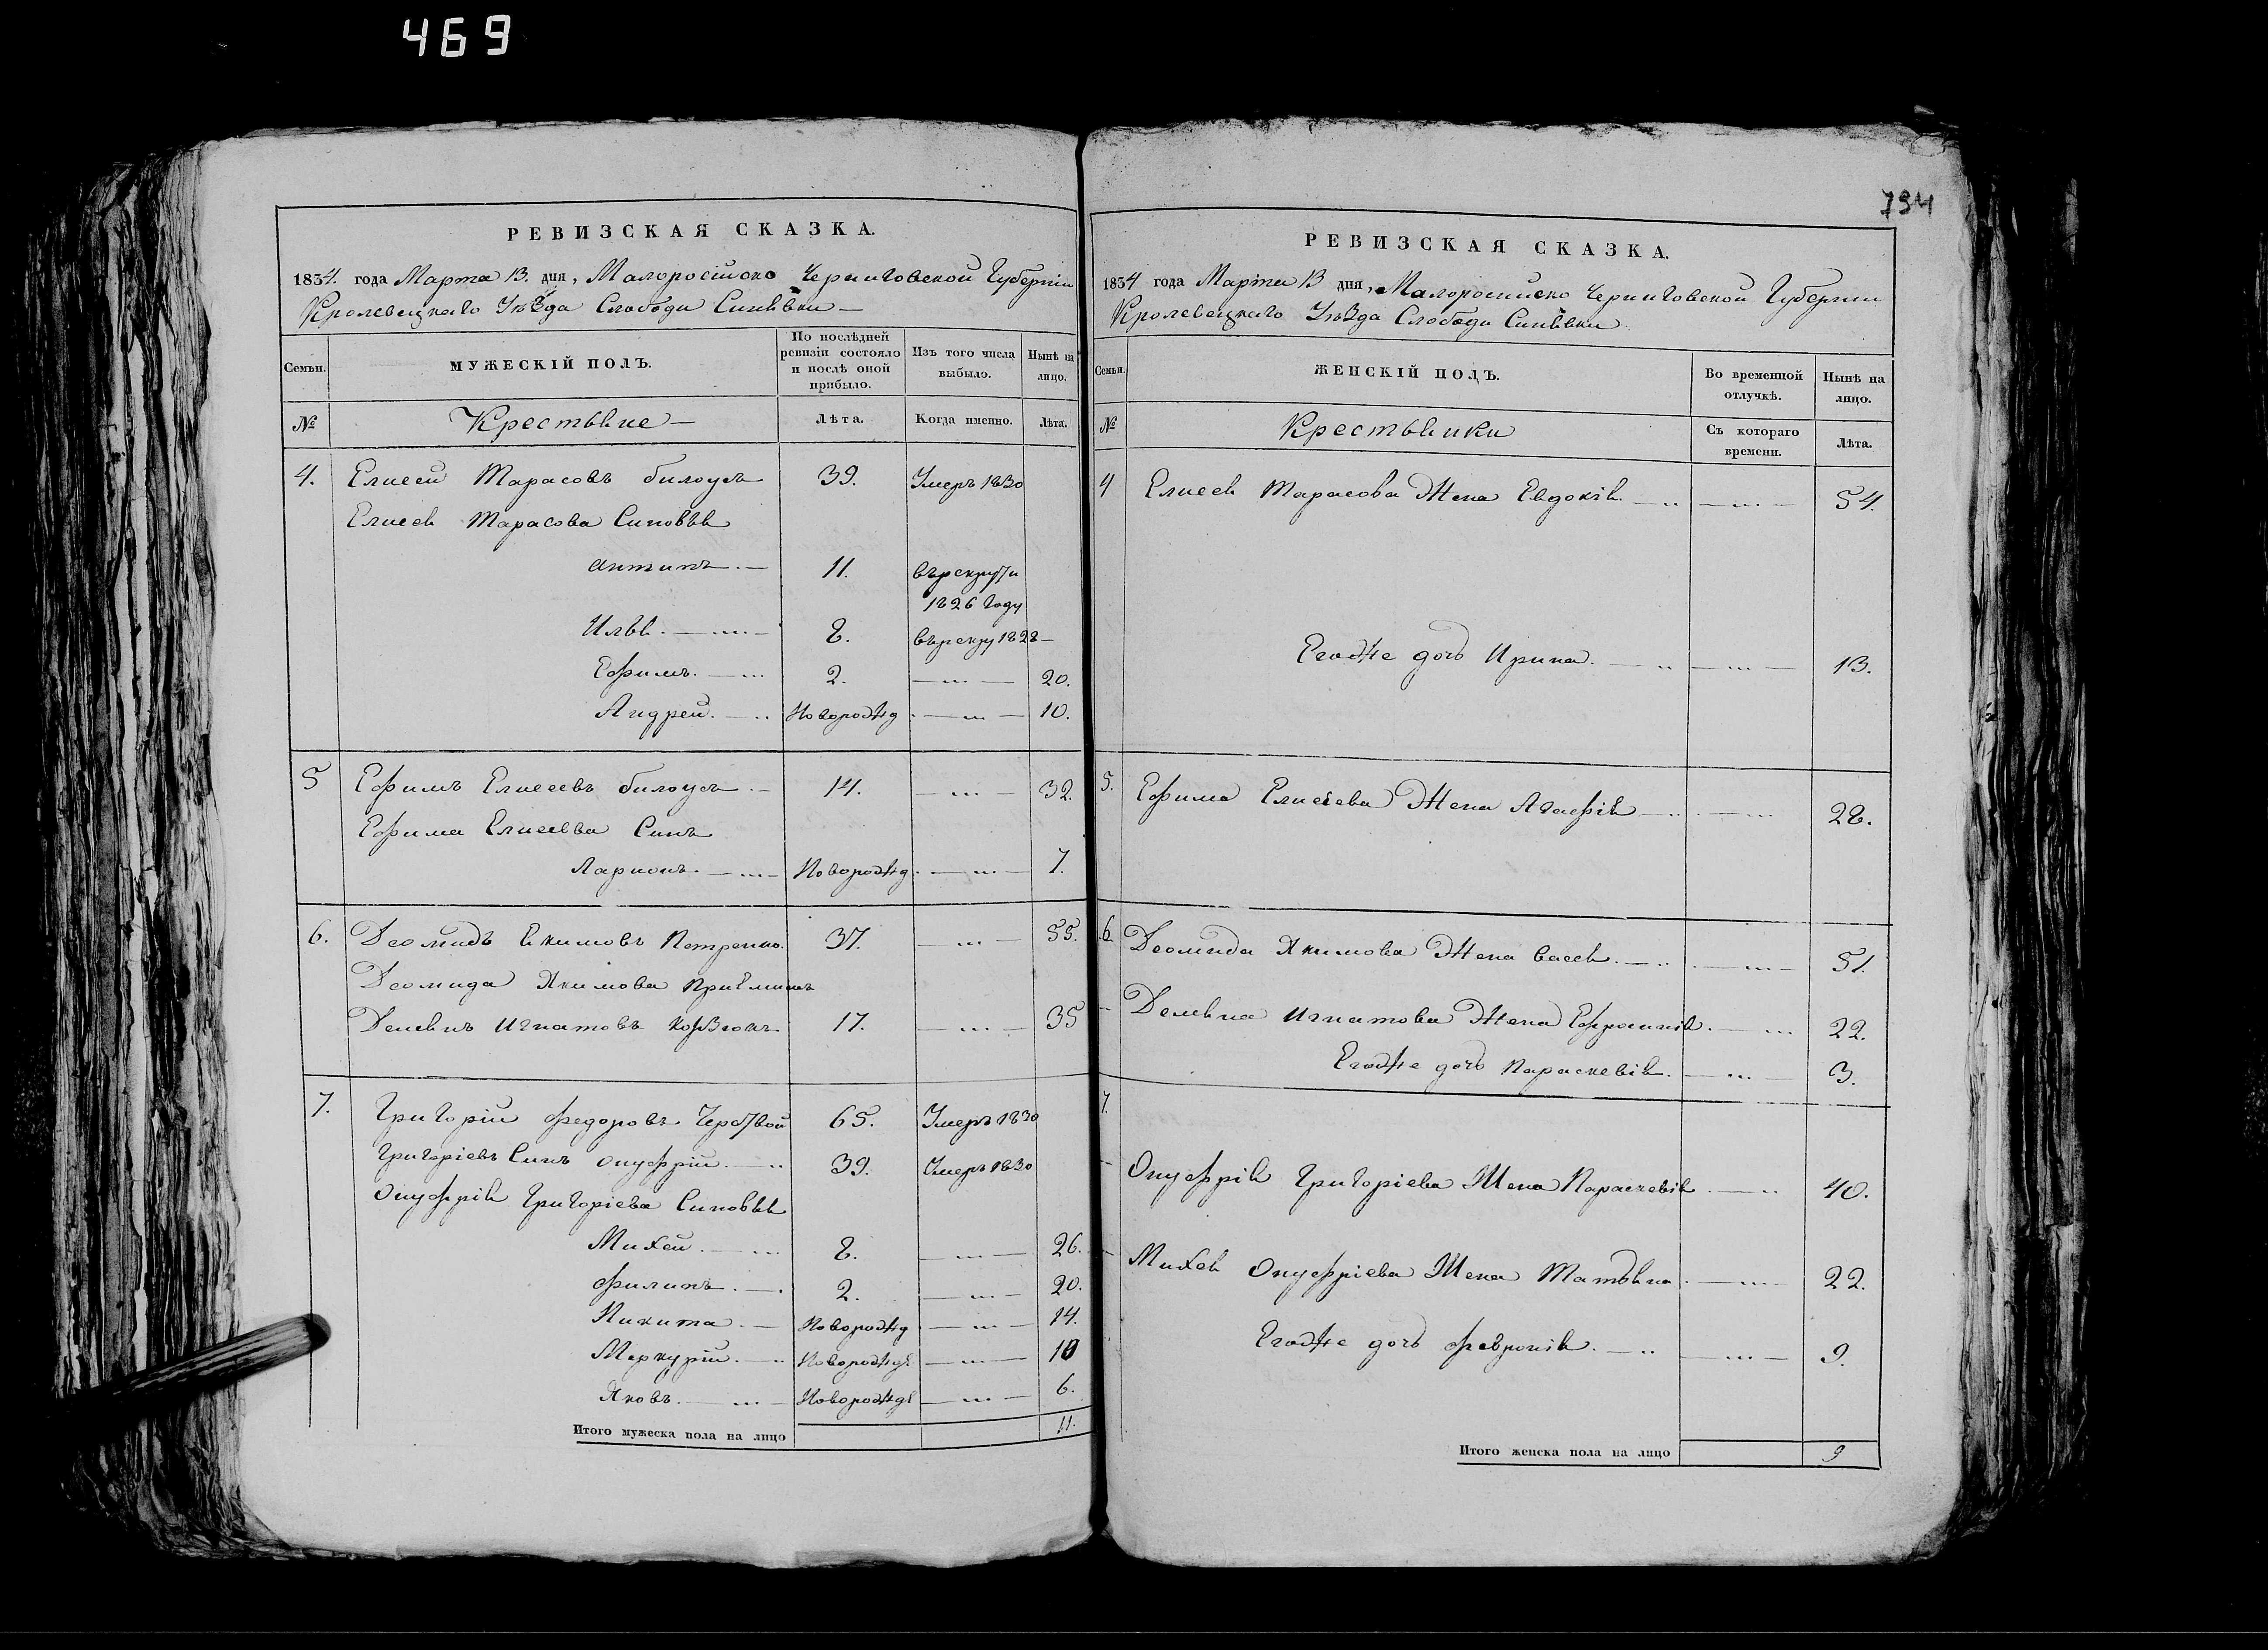 469
РЕВИЗСКАЯ СКАЗКА.
1834. года Марта 13. дня, Малоросийско Черниговской Губерніи
Кролевецкаго Уѣзда Слободи Синѣвки
Семьи.
МУЖЕСКІЙ ПОЛЪ.
По послѣдней ревизіи состояло и послѣ оной прибыло.
Изъ того числа выбыло.
Нынѣ на лицо.
№
Крестьяне
Лѣта.
Когда именно.
Лѣта.
4. Елисей Тарасовъ билоусъ 39. Умеръ 1830
Елисея Тарасова Синовья
антипъ 11. въ рекрути
1826 году
Илья 8. въ рекру 1828
Ефимъ 2. 20.
Андрей Новорожд 10.
5 Ефимъ Елисеевъ билоусъ 14. 32.
Ефима Елисеева Синъ
Ларионъ Новорожд 7.
6. Деомидъ Екимовъ Петренко 37. 55.
Деомида Якимова Приемишъ
Демянъ Игнатовъ 17. 35
7. Григорій Федоровъ Черствой 65. Умеръ 1830
Григоріевъ Синъ онуфрій 39. Умеръ 1830
Онуфрія Григоріева Синовья
Михей 8. 26.
Филипъ 2. 20.
Никита Новорожд 14.
Меркурій Новорожде 10
Яковъ Новорожде 6.
Итого мужеска пола на лицо 11.
794
РЕВИЗСКАЯ СКАЗКА.
1834 года Марта 13 дня, Малоросийско Черниговской Губерніи
Кролевецкаго Уѣзда Слободи Синѣвки
Семьи.
ЖЕНСКІЙ ПОЛЪ.
Во временной отлучкѣ.
Нынѣ на лицо.
№
Крестьянки
Съ котораго времени.
Лѣта.
4 Елисея Тарасова Жена Евдокія 54.
Егожe дочь Ирина 13.
5. Ефима Елисеева Жена Агафія 28.
6. Деомида Якимова Жена васса 51.
Демяна Игнатова Жена Ефросинія 22.
Егоже дочь Параскевія 3.
7.
Онуфрія Григоріева Жена Параскевія 40.
Михея Онуфріева Жена Татьяна 22.
Егоже дочь Февронія 9.
Итого женска пола на лицо 9